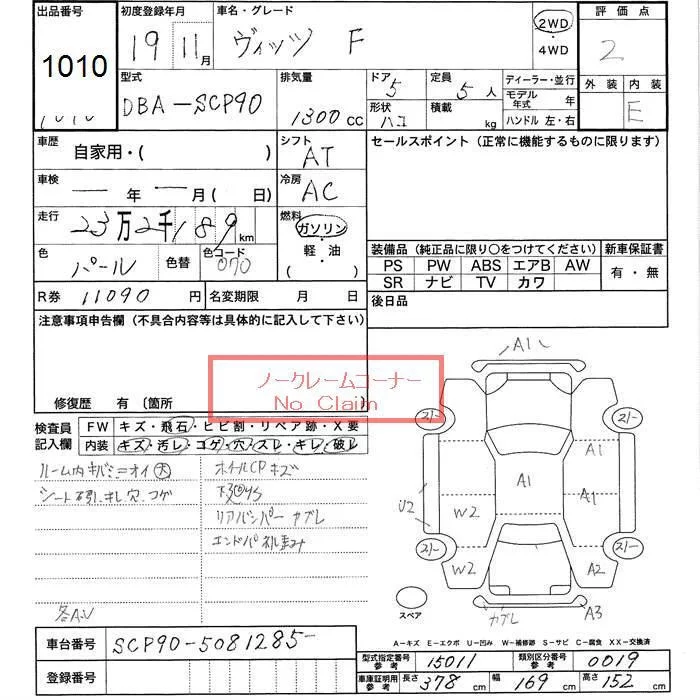 出品番号
1010
初度登録年月
19年 11月
車名・グレード
ヴィッツ F
2WD
・
4WD
評価点
2
外装 内装
E
型式
DBA-SCP90
排気量
1300 CC
ドア
5
形状
定員
5人
積載
kg
ディーラー・並行
モデル年式 年
ハンドル 左・右
車歴
自家用・( )
シフト
AT
セールスポイント (正常に機能するものに限ります)
車検
― 年 ― 月 ( 日)
冷房
AC
走行
23万2千189 km
燃料
ガソリン
・
軽・油
( )
色
パール
色替
色コード
070
装備品 (純正品に限り○をつけてください)
PS PW ABS エアB AW
SR ナビ TV カワ
新車保証書
有・無
R券 11090 円
名変期限 月 日
後日品
注意事項申告欄 (不具合内容等は具体的に記入して下さい)
ノークレームコーナー
No Claim
修復歴 有 (箇所
検査員記入欄
FW キズ・飛石・ヒビ割・リペア跡・X要
内装 キズ・汚レ・コゲ・穴・スレ・キレ・破レ
ルーム内キバミ=オイ 大
ホイルCPキズ
リアバンパーカブレ
A1
A1
A1
A1
U2
W2
W2
A2
カブレ
A3
スペア
A-キズ E-エクボ U-凹み W-補修跡 S-サビ C-腐食 XX-交換済
車台番号
SCP90-5081285-
型式指定番号 参考 15011
類別区分番号 参考 0019
車庫証明用 参考 長さ 378 cm 幅 169 cm 高さ 152 cm